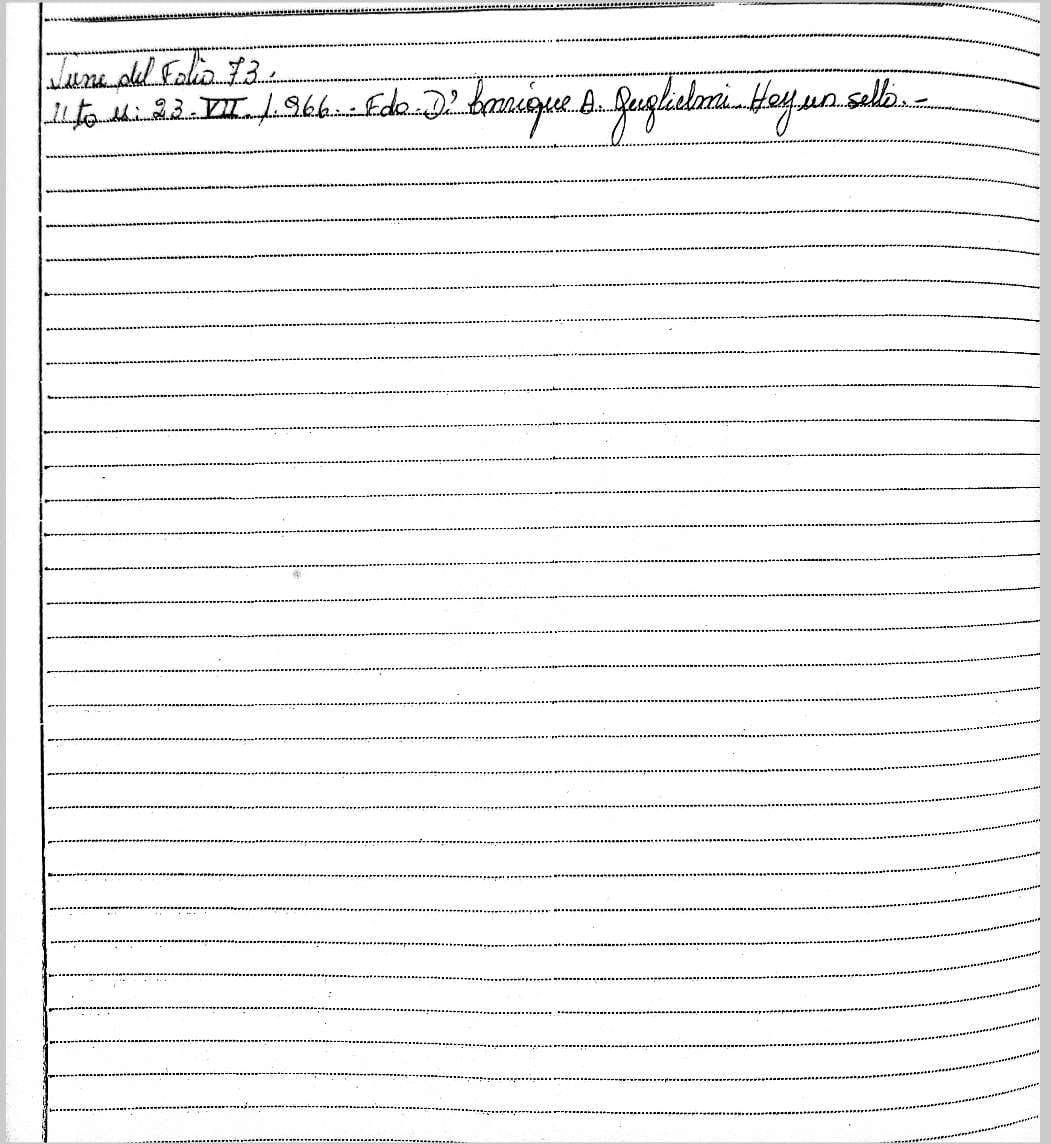 Viene del Folio 73.
//to u: 23-VII-1.966.- Fdo. Dº Enrique A. Guglielmi- Hay un sello.-